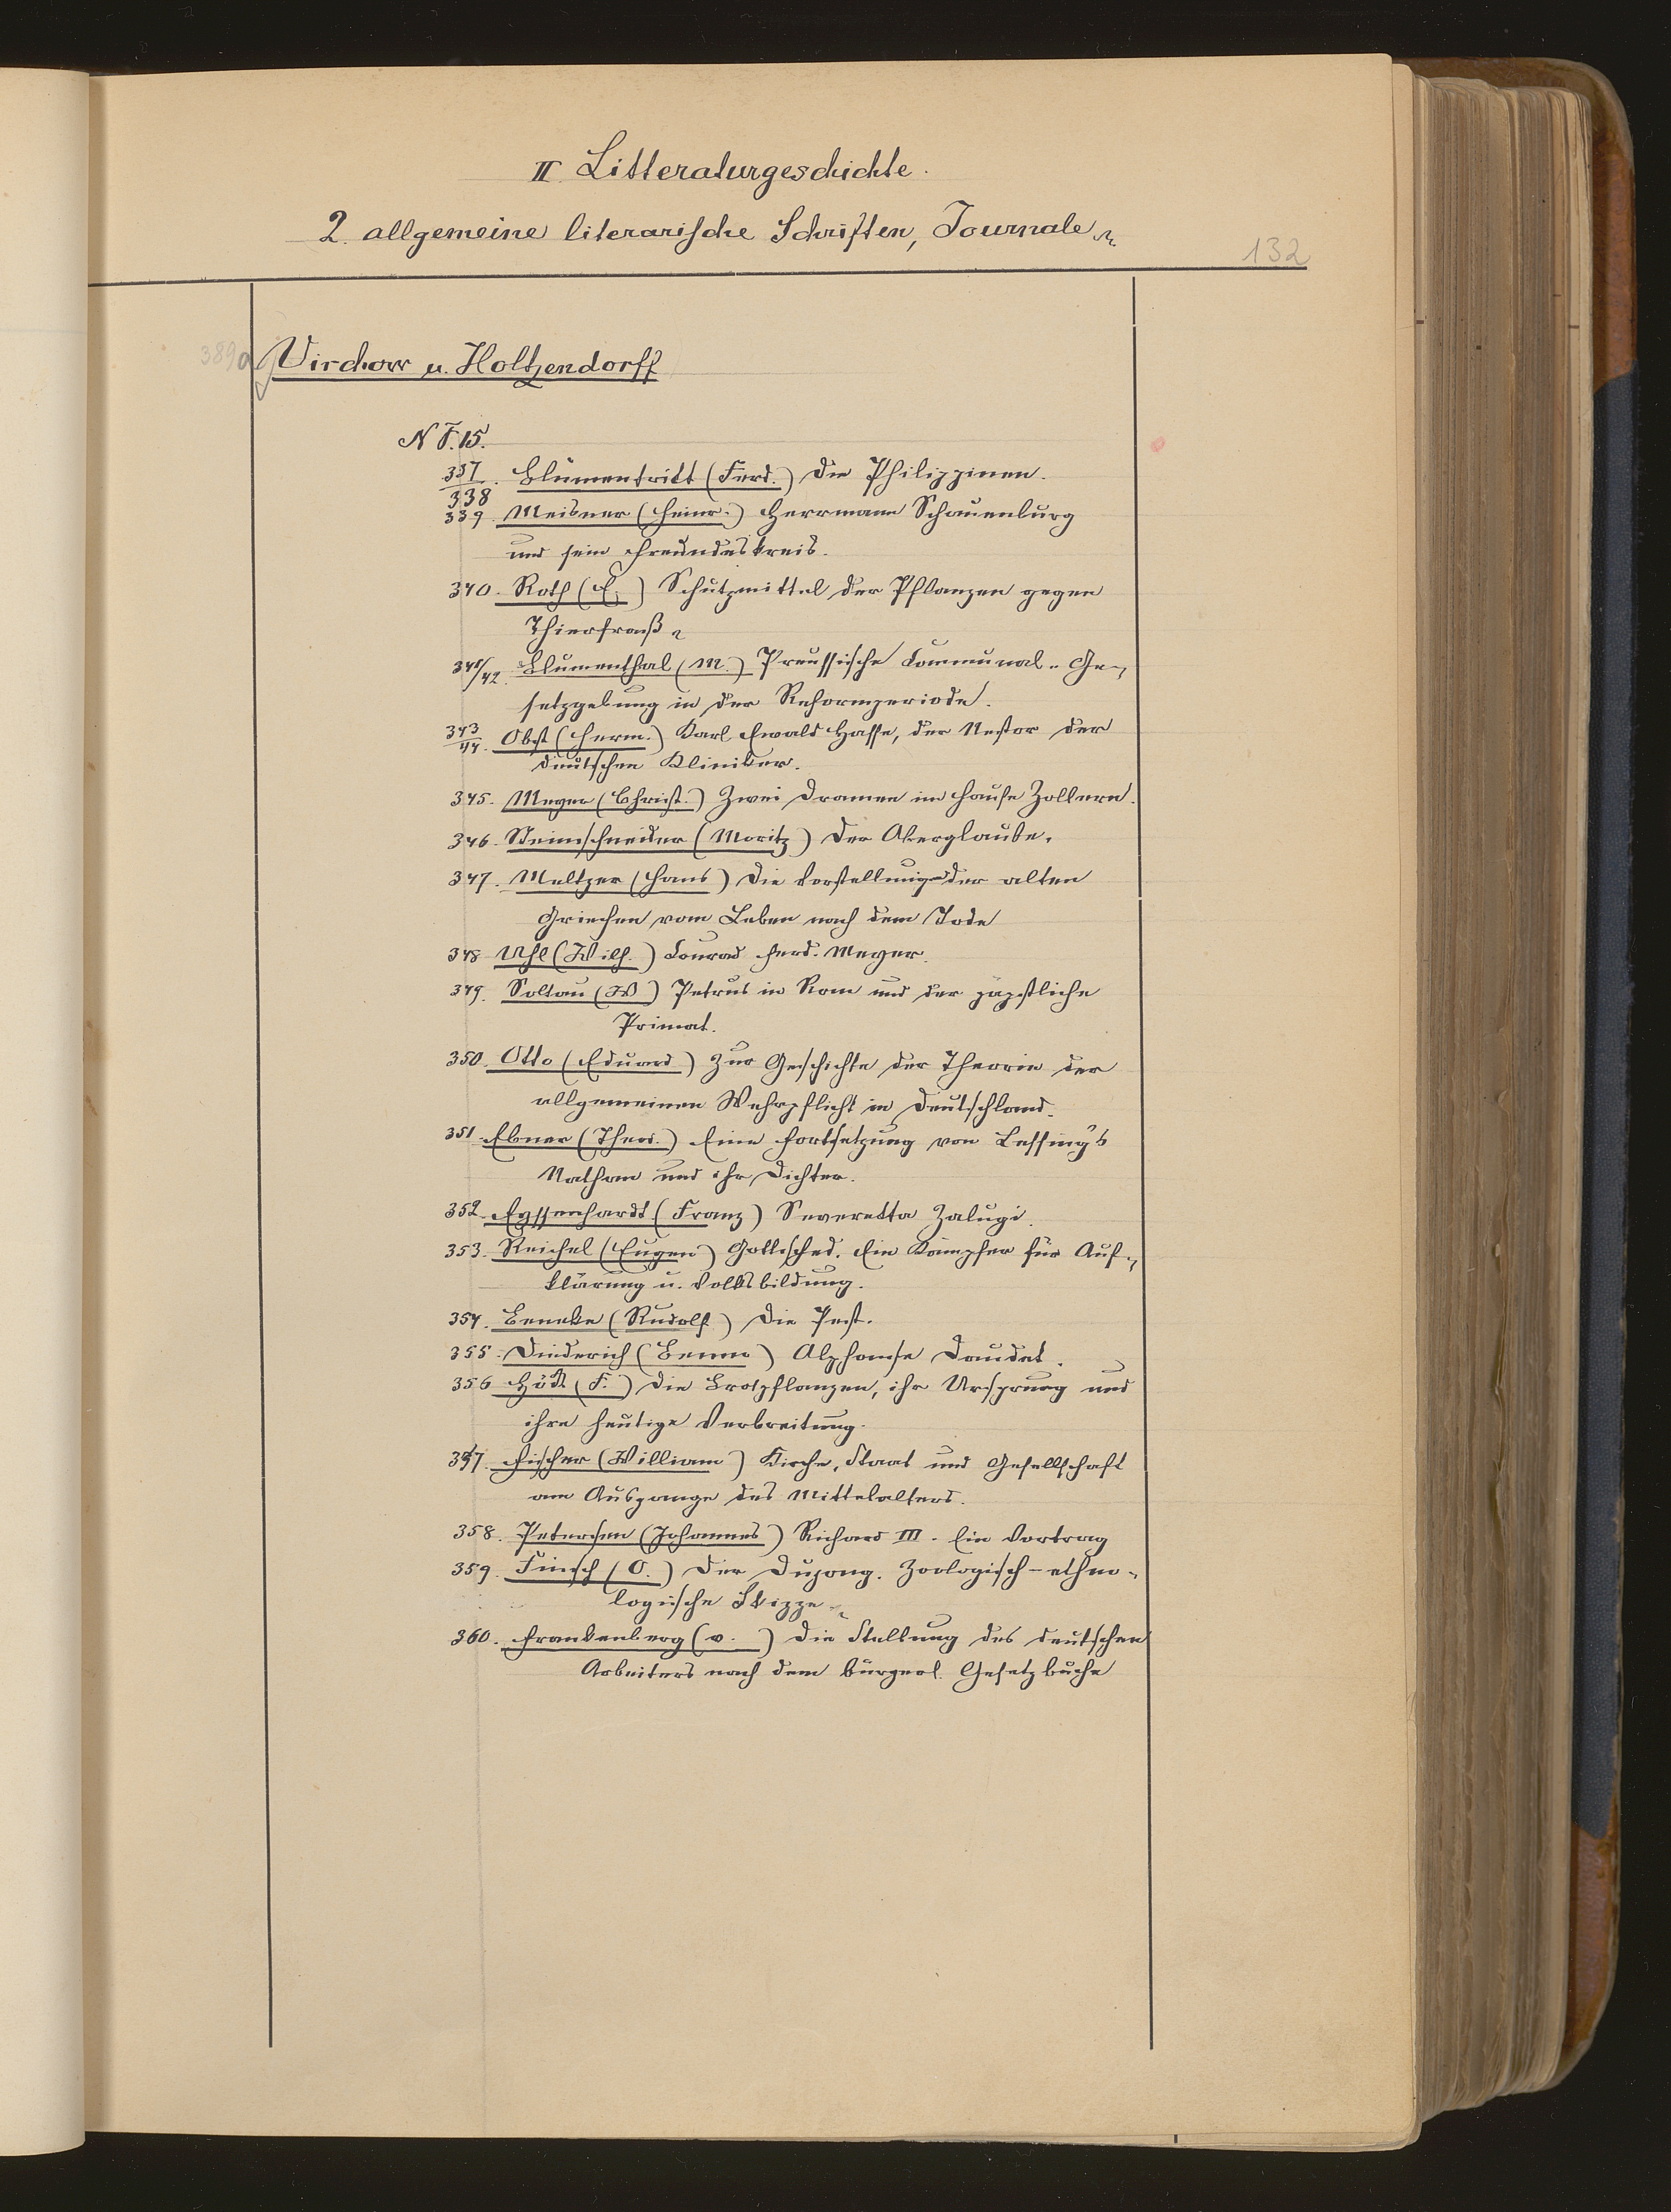 II. Litteraturgeschichte.
2. allgemeine literarische Schriften, Journale
132
389a Virchow u. Holtzendorff
N F. 15.
337/338. Blumentritt (Ferd.) Die Philippinen.
339. Meisner (Heinr.) Herrmann Schauenburg
und sein Freundeskreis.
340. Roth (E.) Schutzmittel der Pflanzen gegen
Thierfraß
341/42. Blumenthal (M.) Preussische Communal-Ge-
setzgebung in der Reformperiode.
343/44. Obst (Herm.) Karl Ewald Hasse, der Nestor der
deutschen Kliniker.
345. Meyer (Christ.) Zwei Dramen im Hause Zollern.
346. Steinschneider (Moritz) Der Aberglaube.
347. Meltzer (Hans) Die Vorstellungen der alten
Griechen vom Leben nach dem Tode
348 Uhl (Wilh.) Conrad Ferd. Meyer.
349. Soltau (W) Petrus in Rom und der päpstliche
Primat.
350. Otto (Eduard) Zur Geschichte der Theorie der
allgemeinen Wehrpflicht in Deutschland.
351. Ebner (Theod.) Eine Fortsetzung von Lessing's
Nathan und ihr Dichter.
352. Eyssenhardt (Franz) Severetta Zalugi.
353. Reichel (Eugen) Gottsched. Ein Kämpfer für Auf-
klärung u. Volksbildung.
354. Beneke (Rudolf) Die Pest.
355. Diederich (Benno) Alphonse Daudet.
356 Höck (F.) Die Brotpflanzen, ihr Ursprung und
ihre heutige Verbreitung.
357. Fischer (William) Kirche, Staat und Gesellschaft
am Ausgange des Mittelalters.
358. Petersen (Johannes) Richard III. Ein Vortrag
359. Finsch (O.) Der Dujong. Zoologisch-ethno-
logische Skizze
360. Frankenberg (v. ) Die Stellung des deutschen
Arbeiters nach dem bürgerl. Gesetzbuche